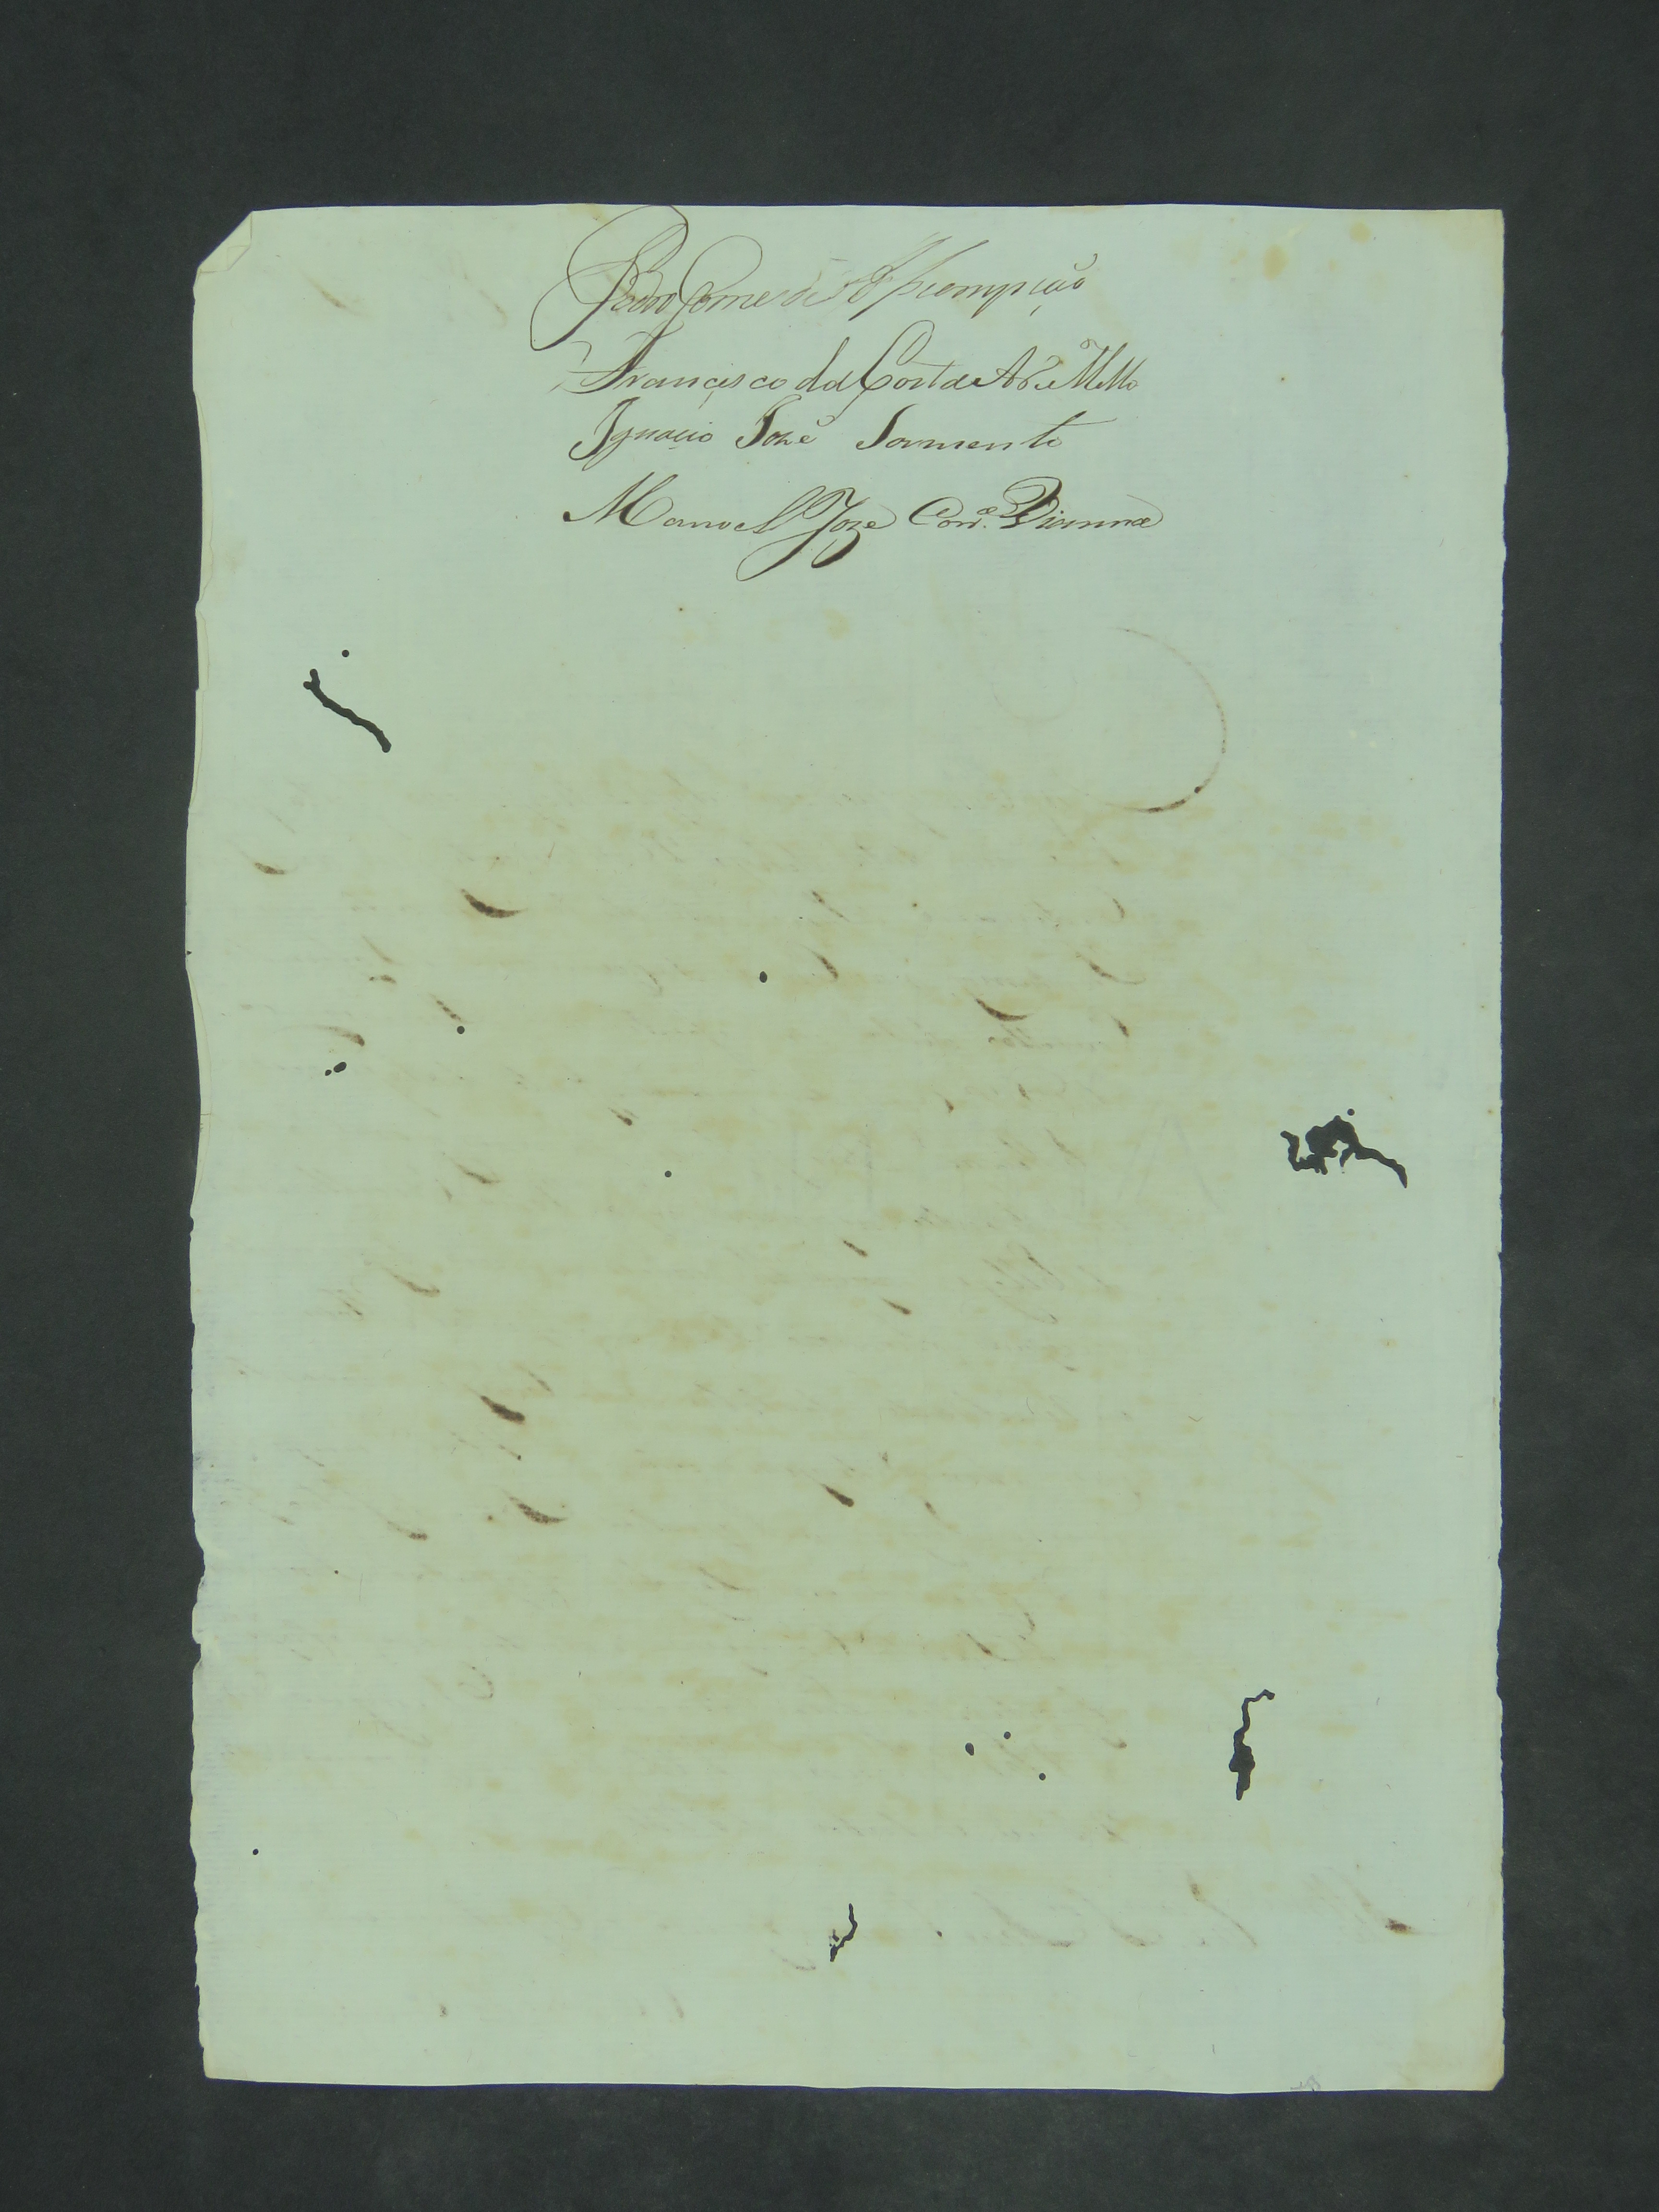 Pedro Gomes d'Assumpção
Francisco da Costa e Mello
Ignacio José Sarmento
Manoel Joze Corr.ª Vianna